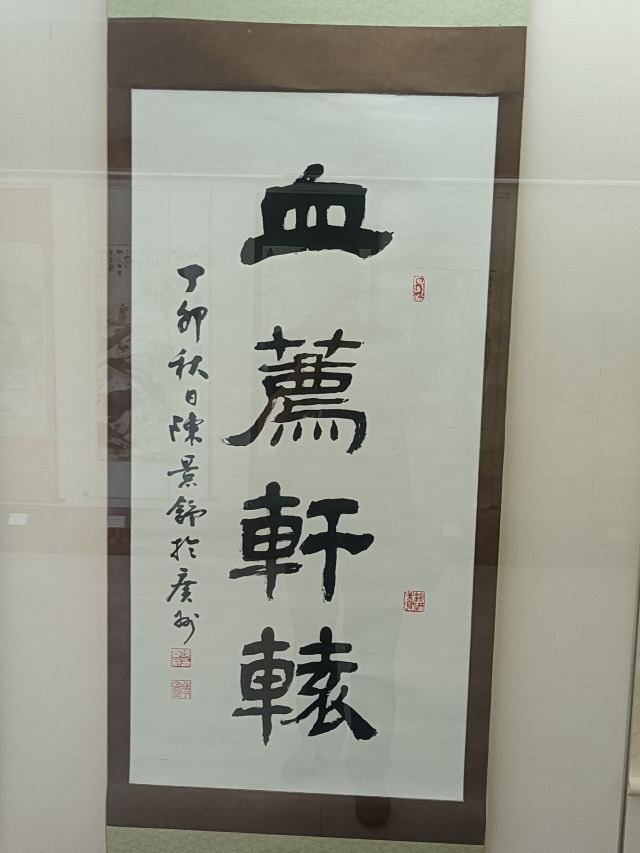 血薦軒轅
丁卯秋日陳景舒於廣州